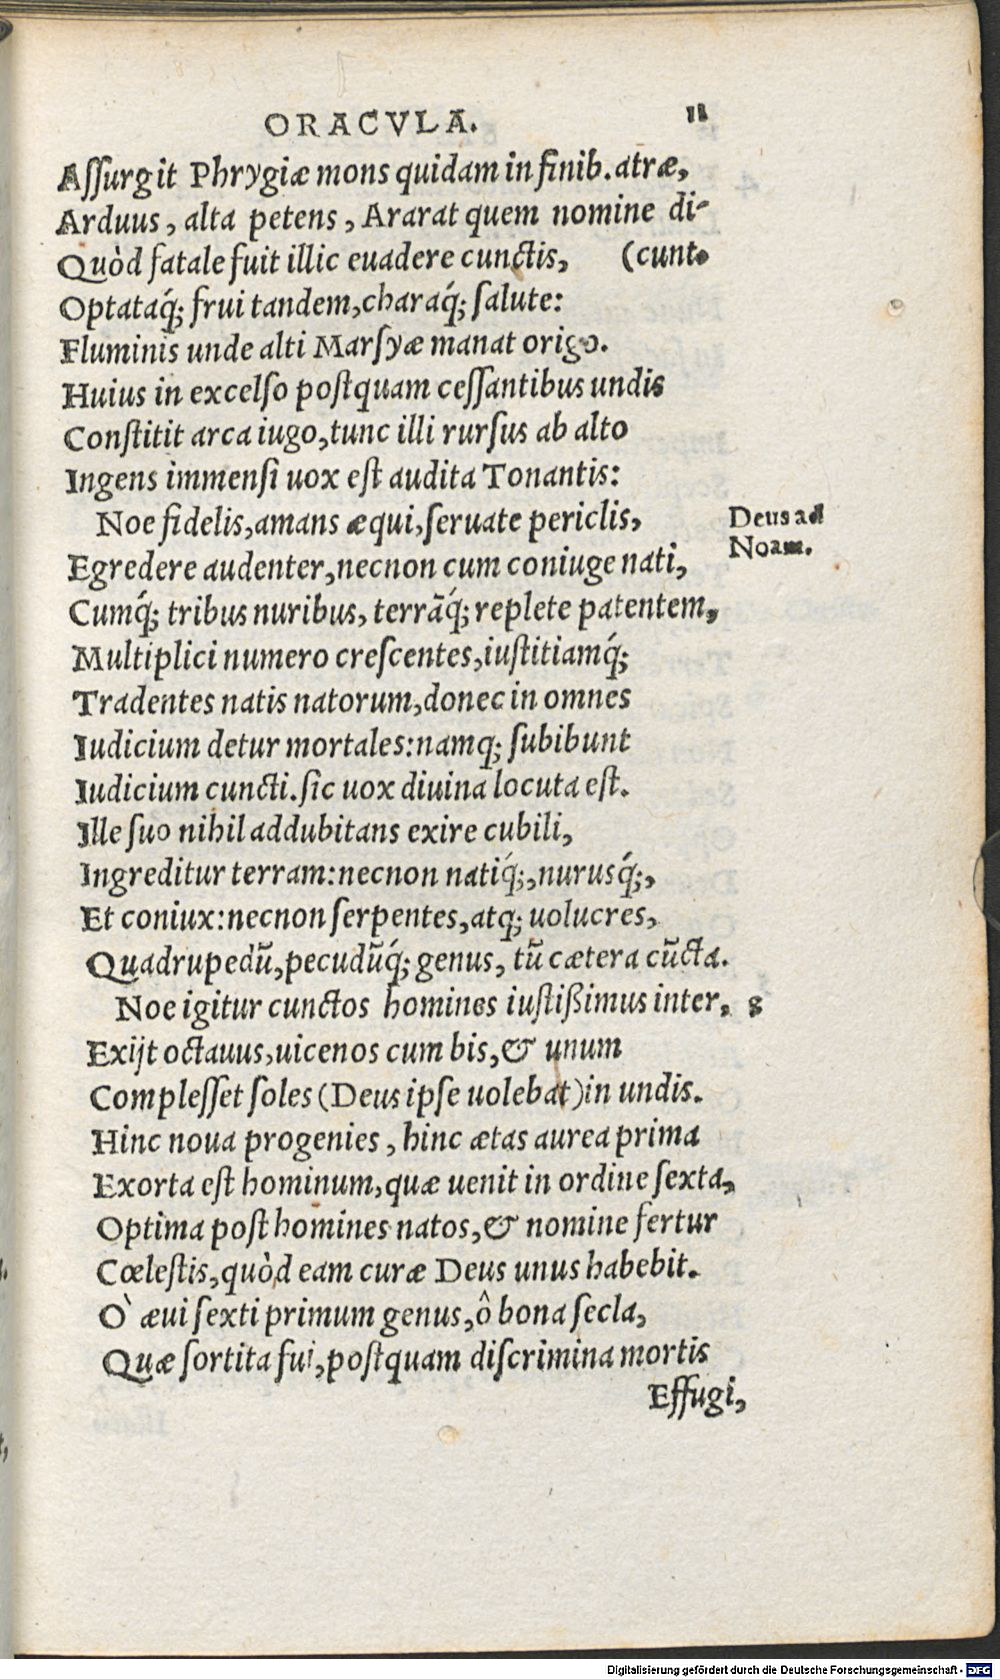 ORACVLA. 11
Aſſurgit Phrygiæ mons quidam in finib. atræ,
Arduus, alta petens, Ararat quem nomine di-
Quòd fatale fuit illic euadere cunctis, (cunt.
Optataq́; frui tandem, charaq́; ſalute:
Fluminis unde alti Marſyæ manat origo.
Huius in excelſo poſtquam ceſſantibus undis
Conſtitit arca iugo, tunc illi rurſus ab alto
Ingens immenſi uox eſt audita Tonantis:
Noe fidelis, amans æqui, ſeruate periclis, Deus ad
Noam.
Egredere audenter, necnon cum coniuge nati,
Cumq́; tribus nuribus, terrãq́; replete patentem,
Multiplici numero creſcentes, iuſtitiamq́;
Tradentes natis natorum, donec in omnes
Iudicium detur mortales: namq; ſubibunt
Iudicium cuncti. ſic uox diuina locuta eſt.
Ille ſuo nihil addubitans exire cubili,
Ingreditur terram: necnon natiq́;, nurusq́;,
Et coniux: necnon ſerpentes, atq; uolucres,
Quadrupedũ, pecudũq́; genus, tũ cætera cũcta.
Noe igitur cunctos homines iuſtißimus inter, 8
Exijt octauus, uicenos cum bis, & unum
Compleſſet ſoles (Deus ipſe uolebat) in undis.
Hinc noua progenies, hinc ætas aurea prima
Exorta eſt hominum, quæ uenit in ordine ſexta,
Optima poſt homines natos, & nomine fertur
Cœleſtis, quòd eam curæ Deus unus habebit.
Ò æui ſexti primum genus, ô bona ſecla,
Quæ ſortita fui, poſtquam diſcrimina mortis
Effugi,
Digitalisierung gefördert durch die Deutsche Forschungsgemeinschaft - DFG